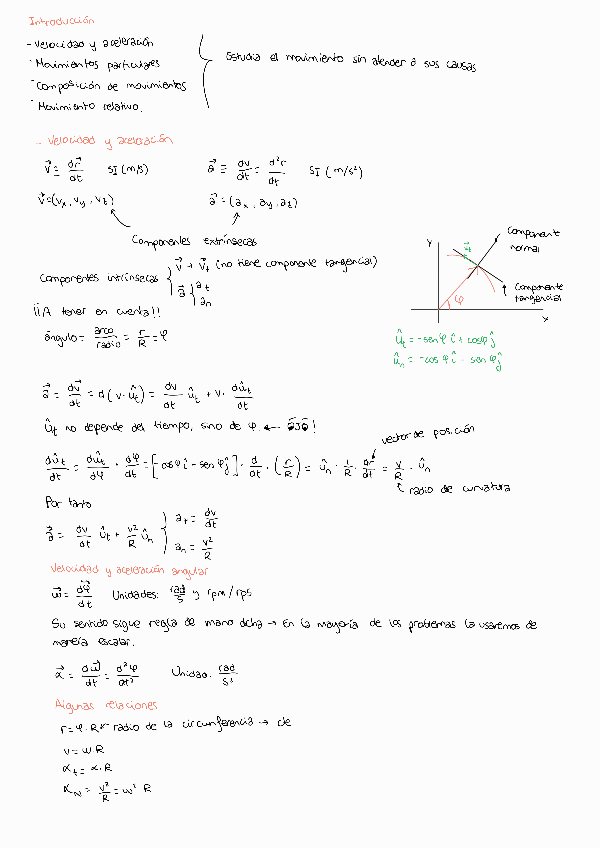 Introducción
- Velocidad y aceleración
- Movimientos particulares
- Composición de movimientos
- Movimiento relativo.
Estudia el movimiento sin atender a sus causas
- Velocidad y aceleración
v⃗ = dr⃗/dt SI (m/s) a⃗ = dv/dt = d²r/dt SI (m/s²)
v⃗ = (vx, vy, vt) a⃗ = (ax, ay, at)
Componentes extrínsecas
Componentes intrínsecas { v⃗ → v⃗t (no tiene componente tangencial)
a⃗ { at
an
¡¡A tener en cuenta!!
ángulo = arco/radio = r/R = φ
y
v⃗t
Componente
normal
Componente
tangencial
φ
x
ût = -sen φ î + cosφ ĵ
ûn = -cos φ î - sen φ ĵ
a⃗ = dv⃗/dt = d(v·ût) = dv/dt ût + v· dût/dt
ût no depende del tiempo, sino de φ. ← ojo!
vector de posición
dût/dt = dût/dφ · dφ/dt = [-cosφ î - sen φ ĵ] · d/dt · (r/R) = ûn · 1/R · dr/dt = v/R · ûn
radio de curvatura
Por tanto
a⃗ = dv/dt ût + v²/R ûn } at = dv/dt
an = v²/R
Velocidad y aceleración angular
ω⃗ = dφ⃗/dt Unidades: rad/s y rpm/rps
Su sentido sigue regla de mano dcha → En la mayoría de los problemas la usaremos de
manera escalar.
α⃗ = dω⃗/dt = d²φ/dt² Unidad: rad/s²
Algunas relaciones
r = φ · R ← radio de la circunferencia → cte
v = ω R
αt = α · R
αN = v²/R = ω² R